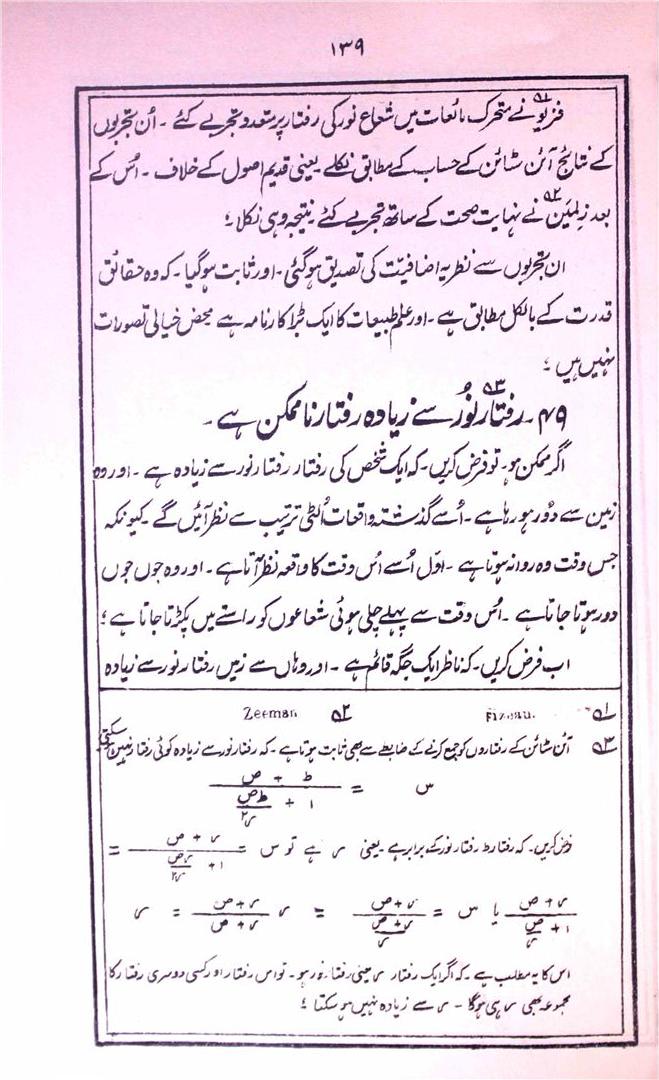 ۱۳۹
فزیو۵۱ نے متحرک مائعات میں شعاع نور کی رفتار پر متعدد تجربے کئے ۔ اُن تجربوں
کے نتائج آئن سٹائن کے حساب کے مطابق نکلے یعنی قدیم اصول کے خلاف ۔ اُس کے
بعد زلیمن۵۲ نے نہایت صحت کے ساتھ تجربے کئے ۔ نتیجہ وہی نکلا ؛
ان تجربوں سے نظریہ اضافیت کی تصدیق ہوگئی ۔ اور ثابت ہوگیا ۔ کہ وہ حقائق
قدرت کے بالکل مطابق ہے ۔ اور علم طبیعات کا ایک بڑا کارنامہ ہے محض خیالی تصورات
نہیں ہیں ؛
۴۹ ۔ رفتار نُور۵۳ سے زیادہ رفتار ناممکن ہے ۔
اگر ممکن ہو ۔ تو فرض کریں ۔ کہ ایک شخص کی رفتار رفتار نور سے زیادہ ہے ۔ اور وہ
زمین سے دُور ہو رہا ہے ۔ اُسے گذشتہ واقعات اُلٹی ترتیب سے نظر آئیں گے ۔ کیونکہ
جس وقت وہ روانہ ہوتا ہے ۔ اوّل اُسے اُس وقت کا واقعہ نظر آتا ہے ۔ اور وہ جوں جوں
دور ہوتا جاتا ہے ۔ اُس وقت سے پہلے چلی ہوئی شعاعوں کو راستے میں پکڑتا جاتا ہے ؛
اب فرض کریں ۔ کہ ناظر ایک جگہ قائم ہے ۔ اور وہاں سے زمین رفتار نور سے زیادہ
۵۱ Fizeau. ۵۲ Zeeman
۵۳ آئن سٹائن کے رفتاروں کو جمع کرنے کے ضابطے سے بھی ثابت ہوتا ہے ۔ کہ رفتار نور سے زیادہ کوئی رفتار نہیں ہوسکتی
س = (ط + ص) / (۱ + ط ص / ر۲)
فرض کریں ۔ کہ رفتار ط رفتار نور کے برابر ہے یعنی ر ہے تو س = (ر + ص) / (۱ + ر ص / ر۲) =
(ر + ص) / (۱ + ص / ر) یا س = (ر + ص) / ((ر + ص) / ر) = ر (ر + ص) / (ر + ص) = ر
اس کا یہ مطلب ہے ۔ کہ اگر ایک رفتار ر یعنی رفتار نور ہو ۔ تو اس رفتار اور کسی دوسری رفتار کا
مجموعہ بھی ر ہی ہوگا ۔ ر سے زیادہ نہیں ہو سکتا ؛